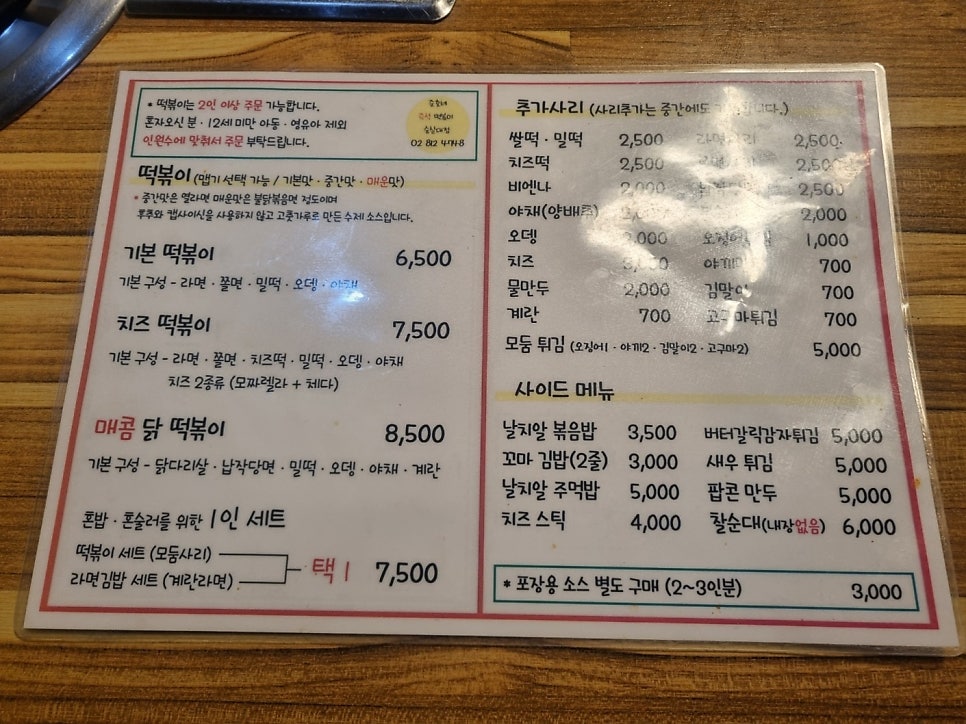 * 떡볶이는 2인 이상 주문 가능합니다.
혼자오신 분 · 12세 미만 아동 · 영유아 제외
인원수에 맞춰서 주문 부탁드립니다.
즉석 떡볶이
떡볶이 (맵기 선택 가능 / 기본맛 · 중간맛 · 매운맛)
* 중간맛은 열라면 매운맛은 불닭볶음면 정도이며
후추와 캡사이신을 사용하지 않고 고춧가루로 만든 수제 소스입니다.
기본 떡볶이 6,500
기본 구성 - 라면 · 쫄면 · 밀떡 · 오뎅 · 야채
치즈 떡볶이 7,500
기본 구성 - 라면 · 쫄면 · 치즈떡 · 밀떡 · 오뎅 · 야채
치즈 2종류 (모짜렐라 + 체다)
매콤 닭 떡볶이 8,500
기본 구성 - 닭다리살 · 납작당면 · 밀떡 · 오뎅 · 야채 · 계란
혼밥 · 혼술러를 위한 1인 세트
떡볶이 세트 (모둠사리)
라면김밥 세트 (계란라면)
택 1 7,500
추가사리 (사리추가는 중간에도
쌀떡 · 밀떡 2,500 2,500
치즈떡 2,500 2,500
비엔나 2,000 2,500
야채(양배추) 2,000
오뎅 2,000 1,000
치즈 700
물만두 2,000 김말이 700
계란 700 고구마튀김 700
모둠 튀김 (오징어1 · 야끼2 · 김말이2 · 고구마2) 5,000
사이드 메뉴
날치알 볶음밥 3,500 버터갈릭감자튀김 5,000
꼬마 김밥(2줄) 3,000 새우 튀김 5,000
날치알 주먹밥 5,000 팝콘 만두 5,000
치즈 스틱 4,000 찰순대(내장없음) 6,000
* 포장용 소스 별도 구매 (2~3인분) 3,000